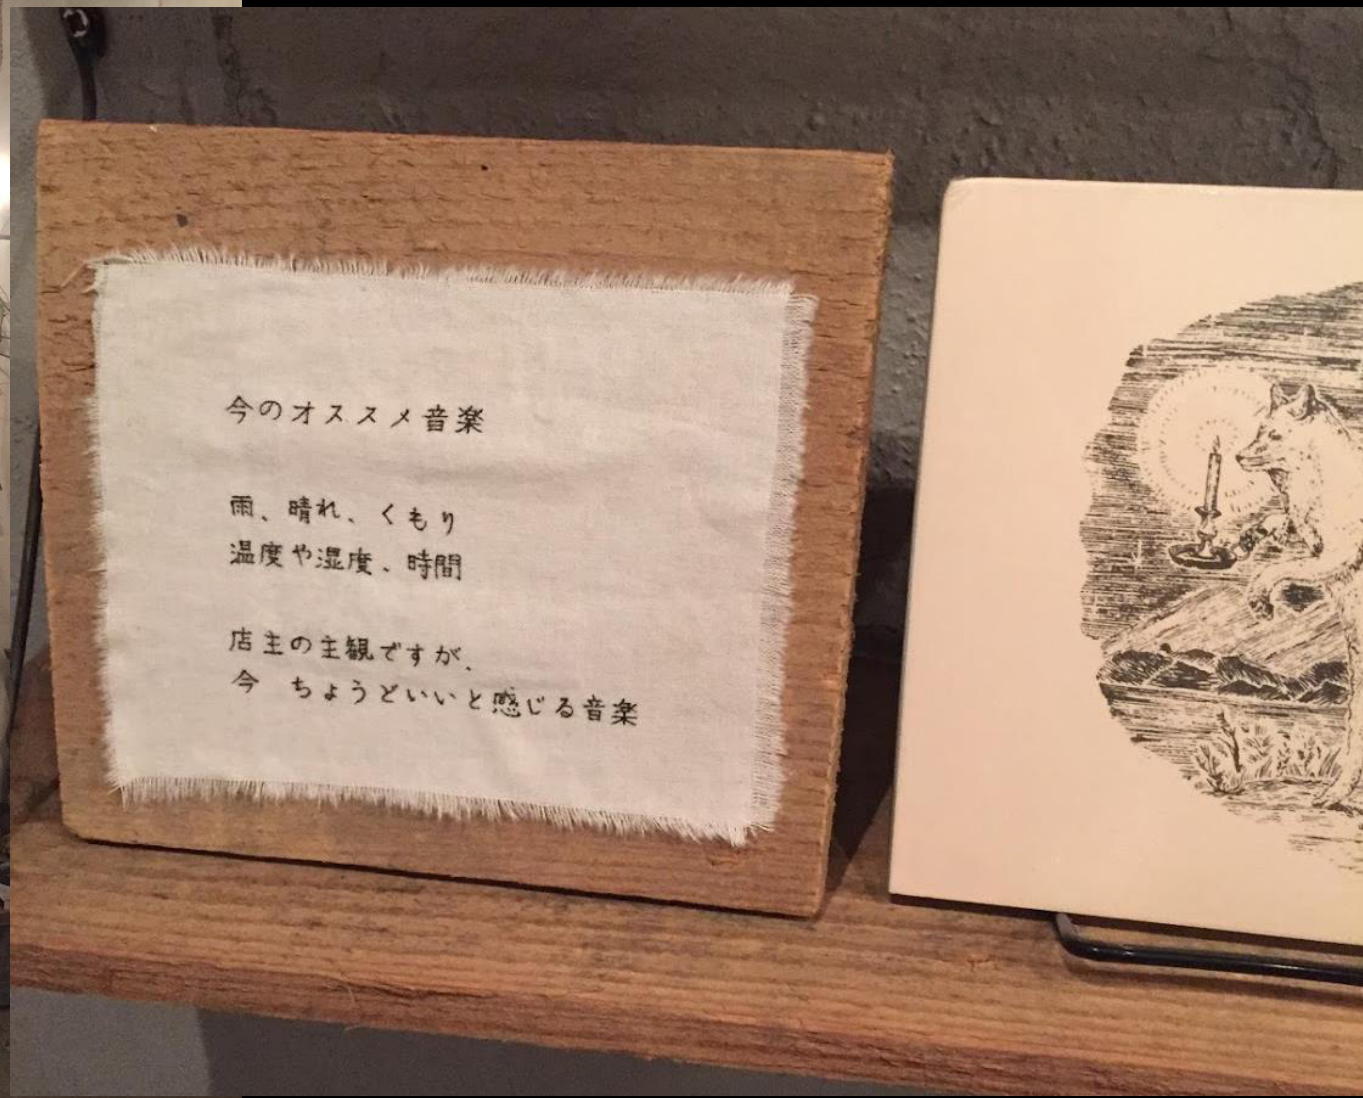 今のオススメ音楽
雨、晴れ、くもり
温度や湿度、時間
店主の主観ですが、
今　ちょうどいいと感じる音楽